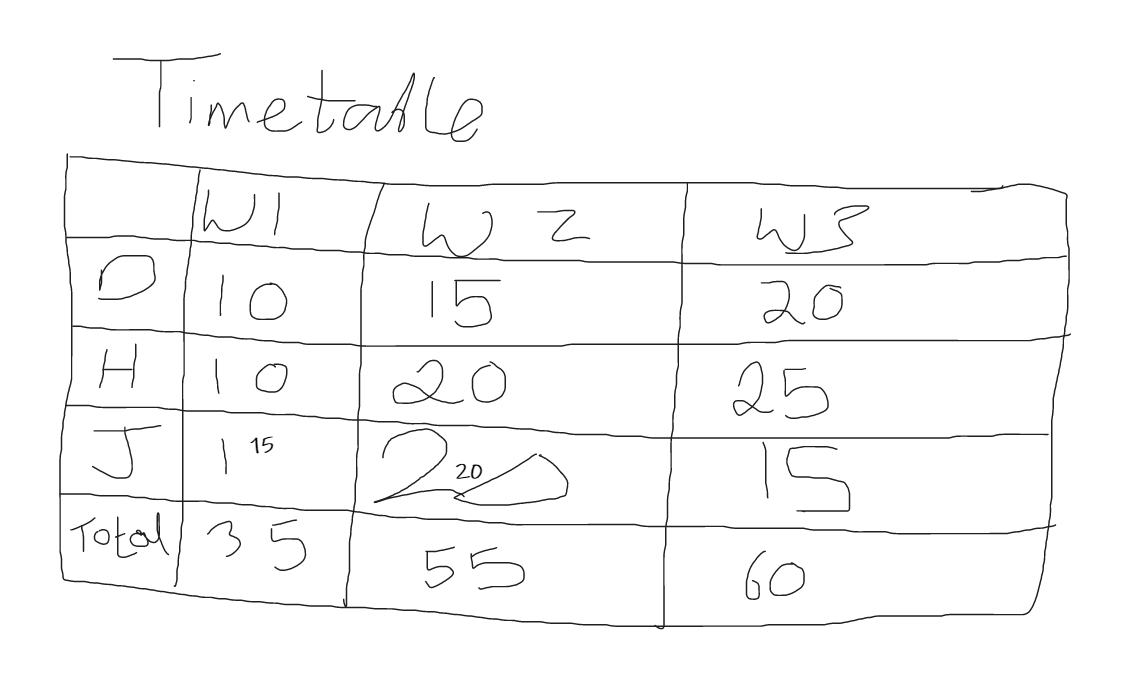 Timetable
W1 W2 W3
D 10 15 20
H 10 20 25
J 1 15 20 20 15
Total 35 55 60